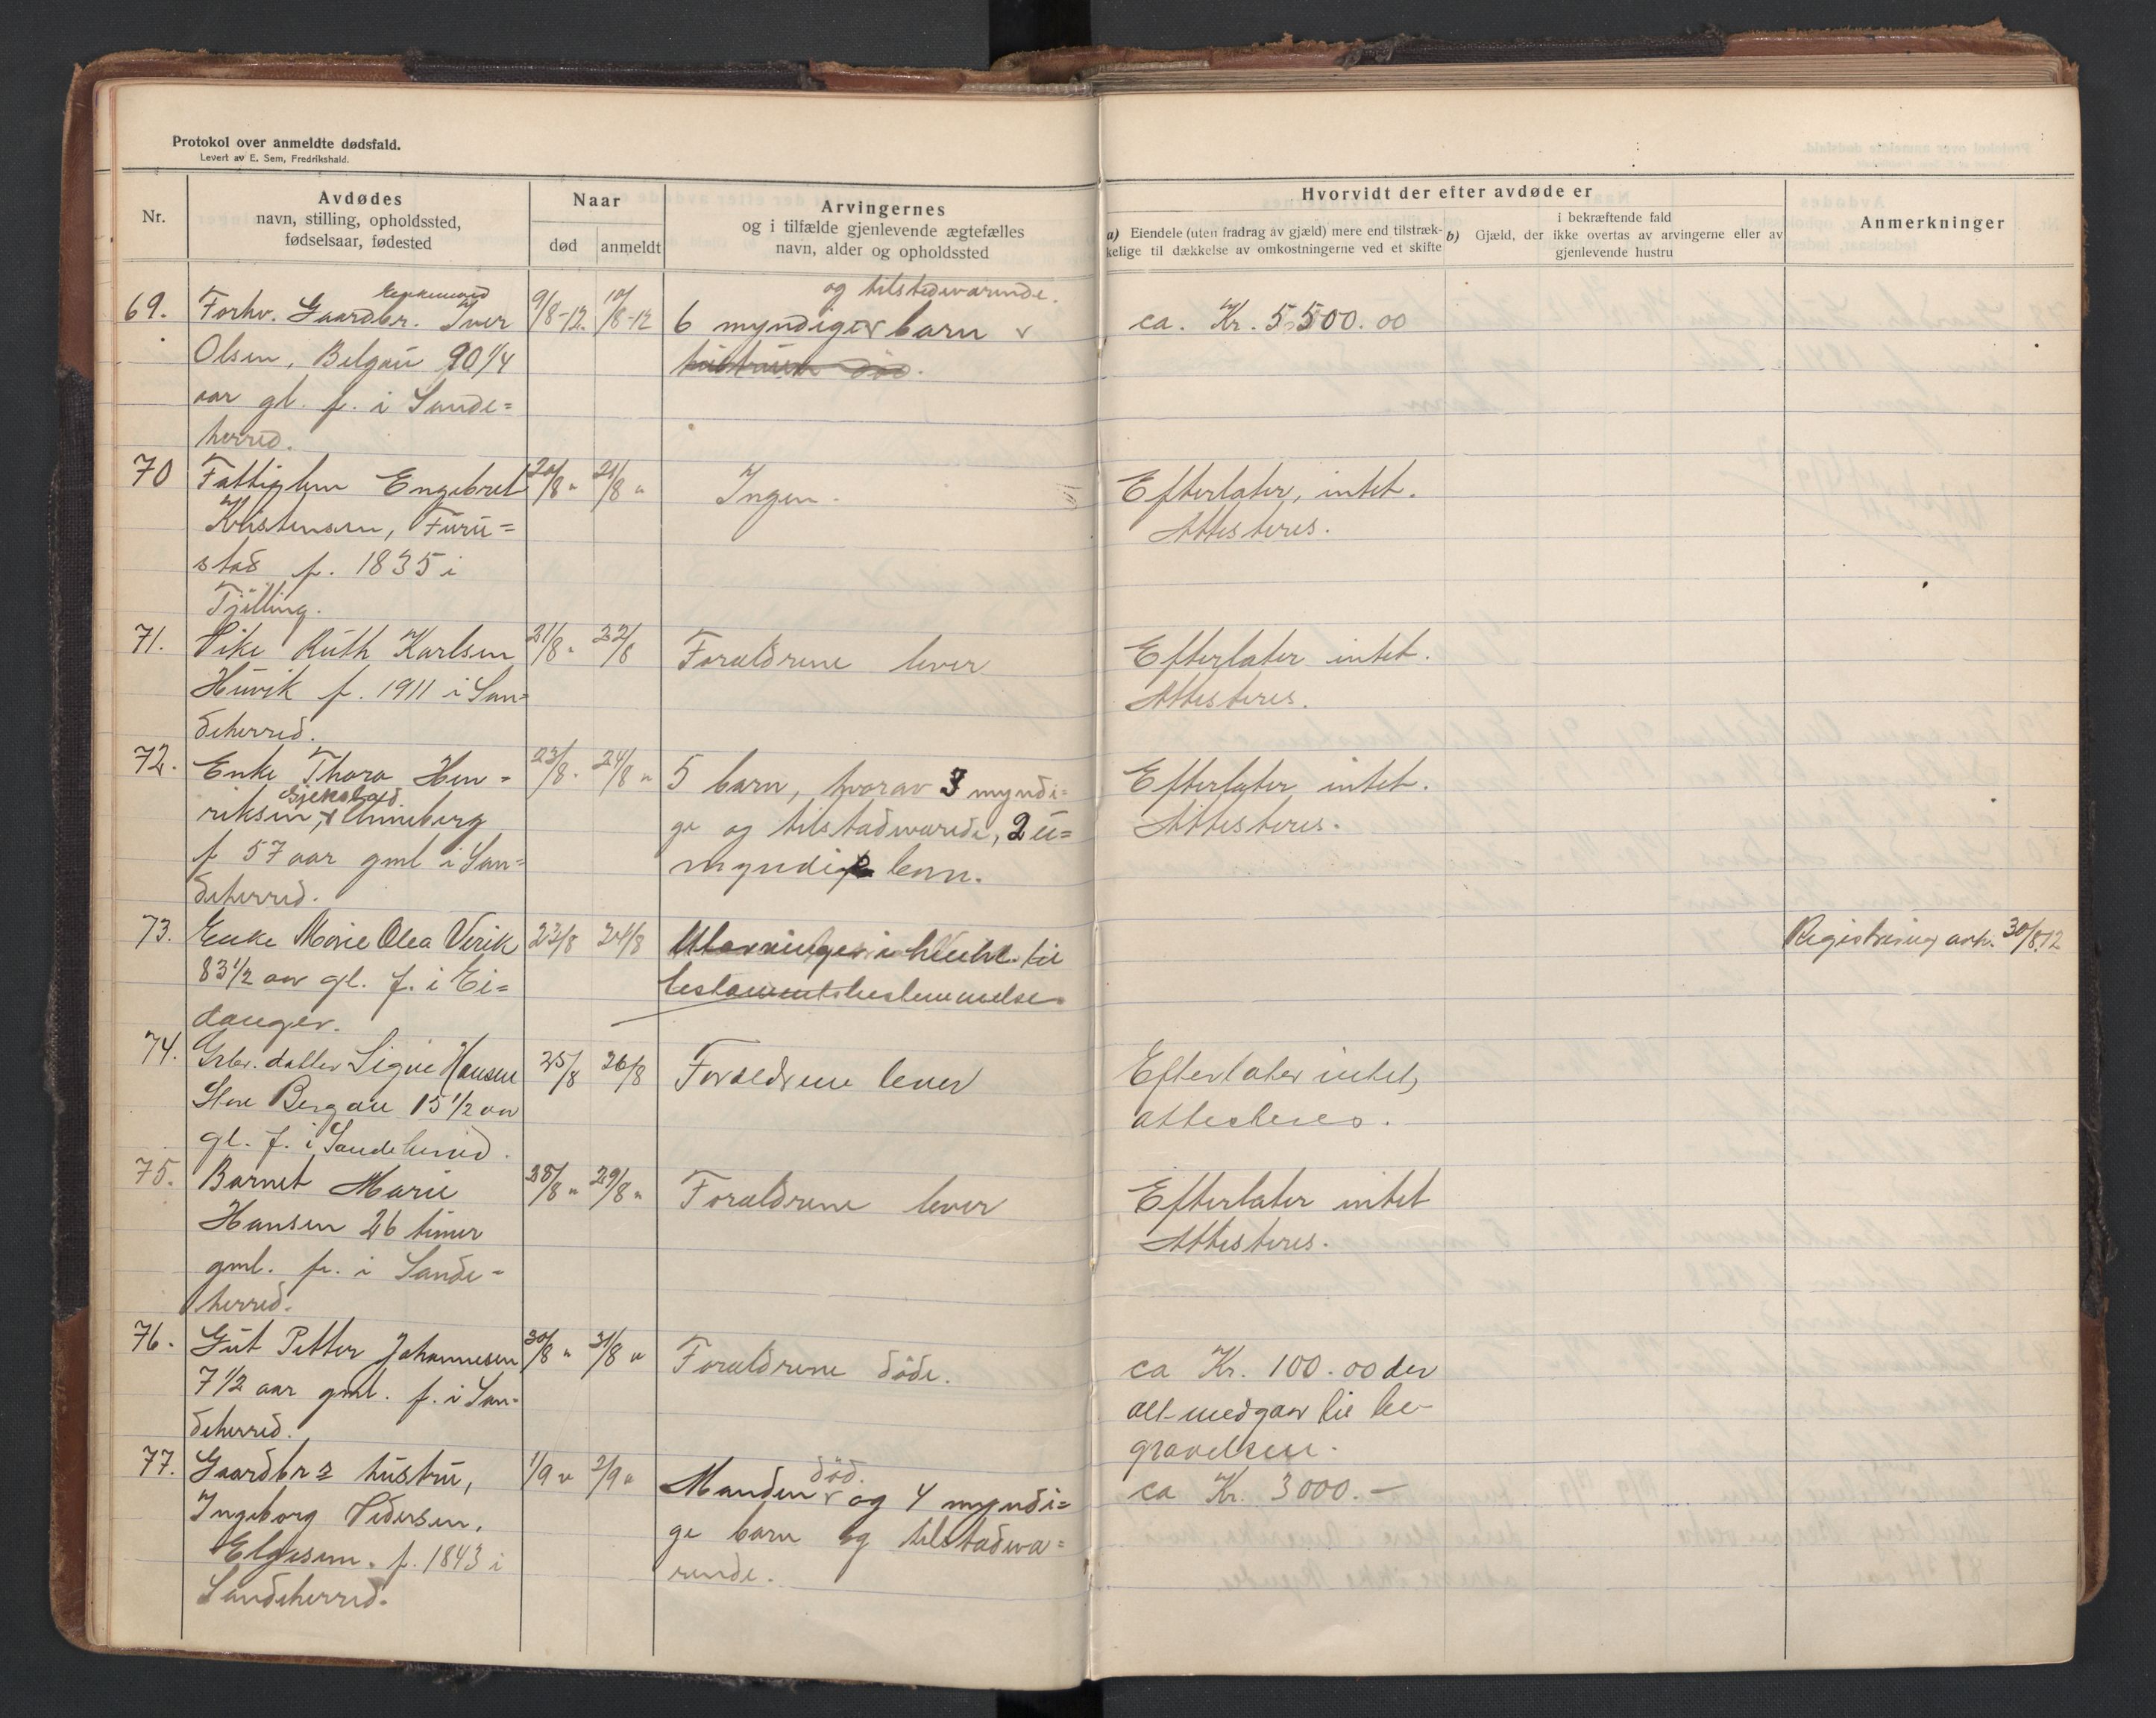 Protokol over anmeldte dødsfald.
Levert av E. Sem, Fredrikshald.
Nr.
Avdødes
navn, stilling, opholdssted,
fødselsaar, fødested
Naar
død
anmeldt
Arvingernes
og i tilfælde gjenlevende ægtefælles
navn, alder og opholdssted
Hvorvidt der efter avdøde er
a) Eiendele (uten fradrag av gjæld) mere end tilstræk-
kelige til dækkelse av omkostningerne ved et skifte
b) Gjæld, der
i bekræftende fald
ikke overtas av arvingerne eller av
gjenlevende hustru
Anmerkninger
69.
Enkemand
Forhv. Gaardbr. Iver
Olsen, Belgau 90 1/4
aar gl. f. i Sande=
herred.
9/8-12.
10/8-12
og tilstedeværende.
6 myndige barn
hustruen død.
ca. Kr. 5500.00
70
Fattiglem Engebret
Kristensen, Furu=
stad f. 1835 i
Tjölling.
20/8 "
21/8 "
Ingen.
Efterlater, intet.
Attesteres.
71.
Pike Ruth Karlsen
Huvik f. 1911 i San=
deherred.
21/8 "
22/8
Forældrene lever
Efterlater intet.
Attesteres.
72.
Enke Thora Hen=
Gjekstad.
riksen, Unneberg
f 57 aar gml i San=
deherred.
23/8 "
24/8 "
5 barn, hvorav 3 myndi=
ge og tilstadværede, 2 u=
myndige
Efterlater intet.
Attesteres.
73.
Enke Marie Olea Virik
83 1/2 aar gl. f. i Ei=
danger.
23/8
24/8
Utarvinger i h til
testamentsbestemmelse.
Registrering avh. 30/8.12
74.
Grbr. datter Signe Hansen
Store Bergan 15 1/2 aar
gl. f. i Sandeherred.
25/8
26/8
Forældrene lever
Efterlater intet,
attesteres.
75.
Barnet Marie
Hansen 26 timer
gml. f. i Sande-
herred.
28/8 "
29/8 "
Forældrene lever
Efterlater intet
Attesteres.
76.
Gut Petter Johannesen
7 1/2 aar gml. f. i San-
deherred.
30/8 "
31/8 "
Forældrene døde.
ca Kr. 100.00 der
alt medgaar til be-
gravelsen.
77.
Gaardbrs hustru,
Ingeborg Pedersen,
Elgesem. f. 1843 i
Sandeherred.
1/9 "
2/9 "
død.
Manden og 4 myndi=
ge barn og tilstadvæ=
rende.
ca Kr. 3000.-